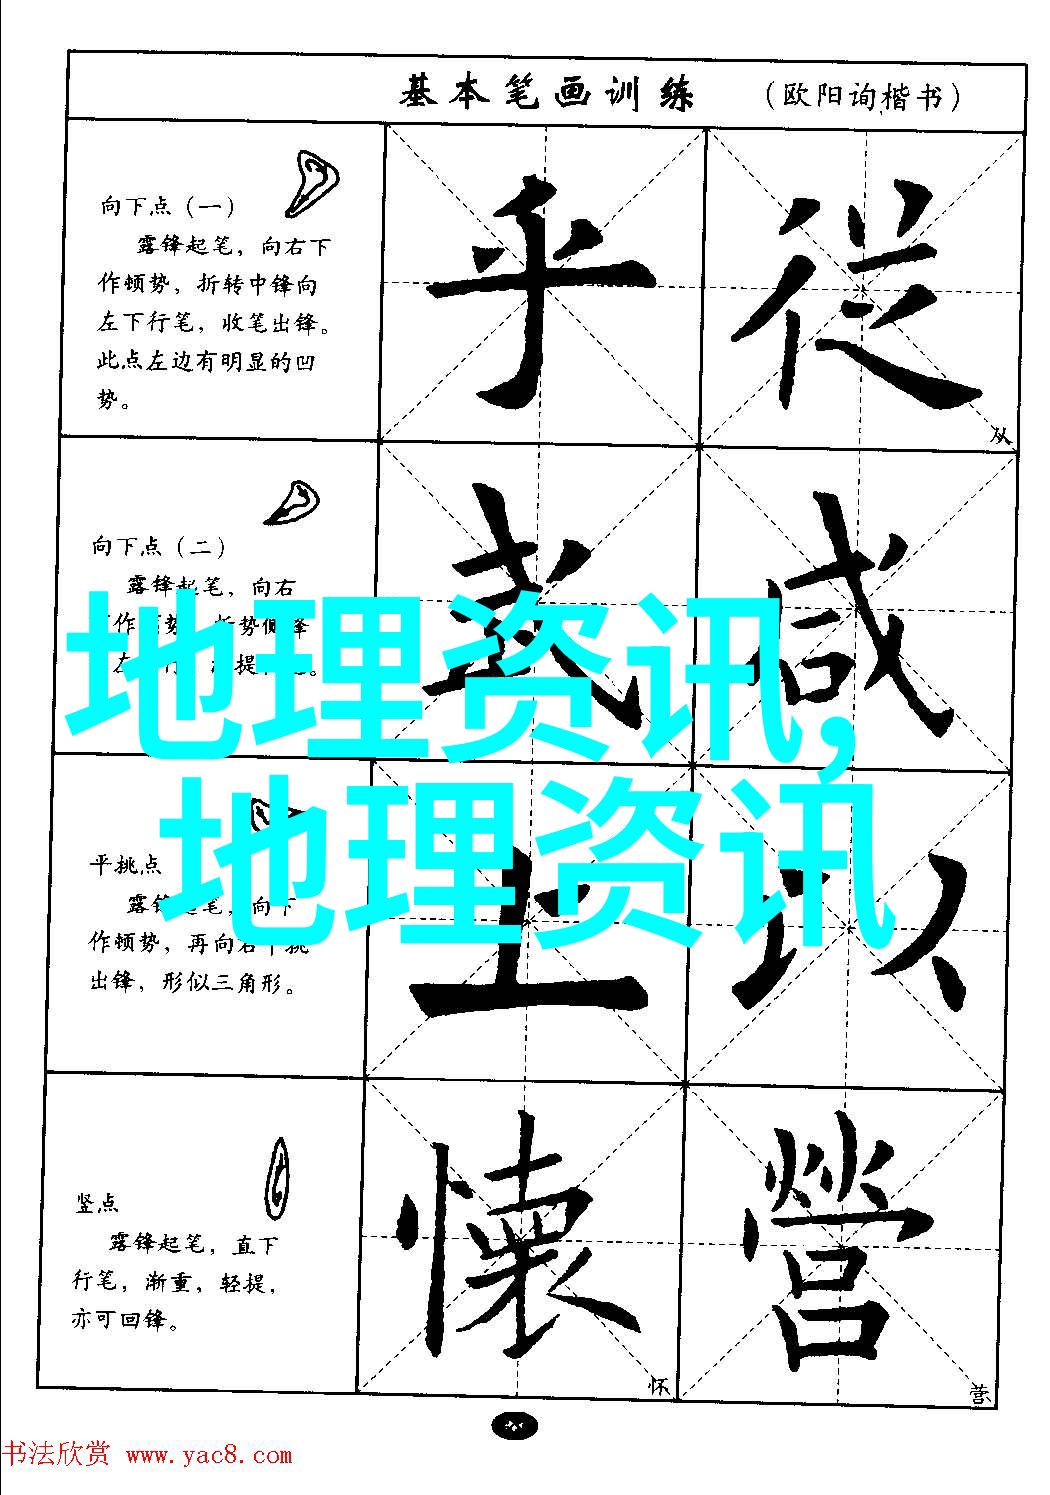 基本笔画训练 （欧阳询楷书）
向下点（一）
露锋起笔，向右下
作顿势，折转中锋向
左下行笔，收笔出锋。
此点左边有明显的凹
势。
乎 從
从
向下点（二）
露锋起笔，向右
作 势 折势侧锋
左 行 提
咸
地理资讯，
地理资讯
平挑点
露锋起笔，向下
作顿势，再向右平挑
出锋，形似三角形。
上 以
竖点
露锋起笔，直下
行笔，渐重，轻提，
亦可回锋。
懷 營
怀 营
书法欣赏 www.yac8.com